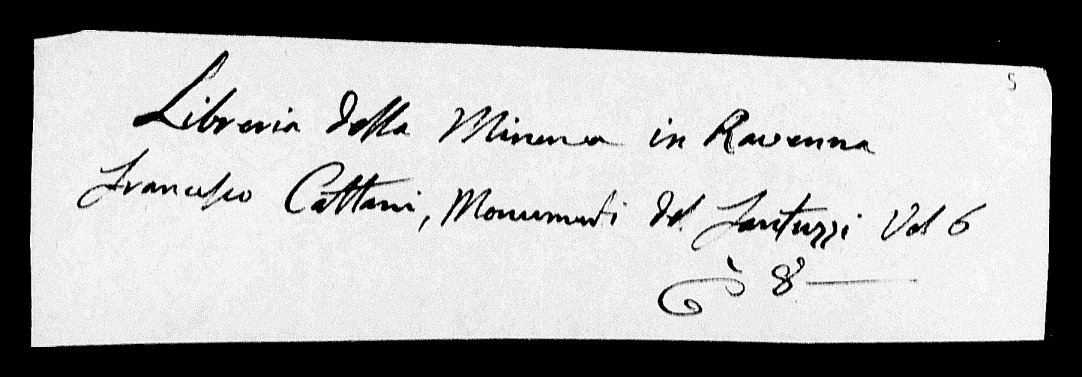 5
Libreria della Minerva in Ravenna
Francesco Cattani, Monumenti del Fantuzzi Vol 6
8